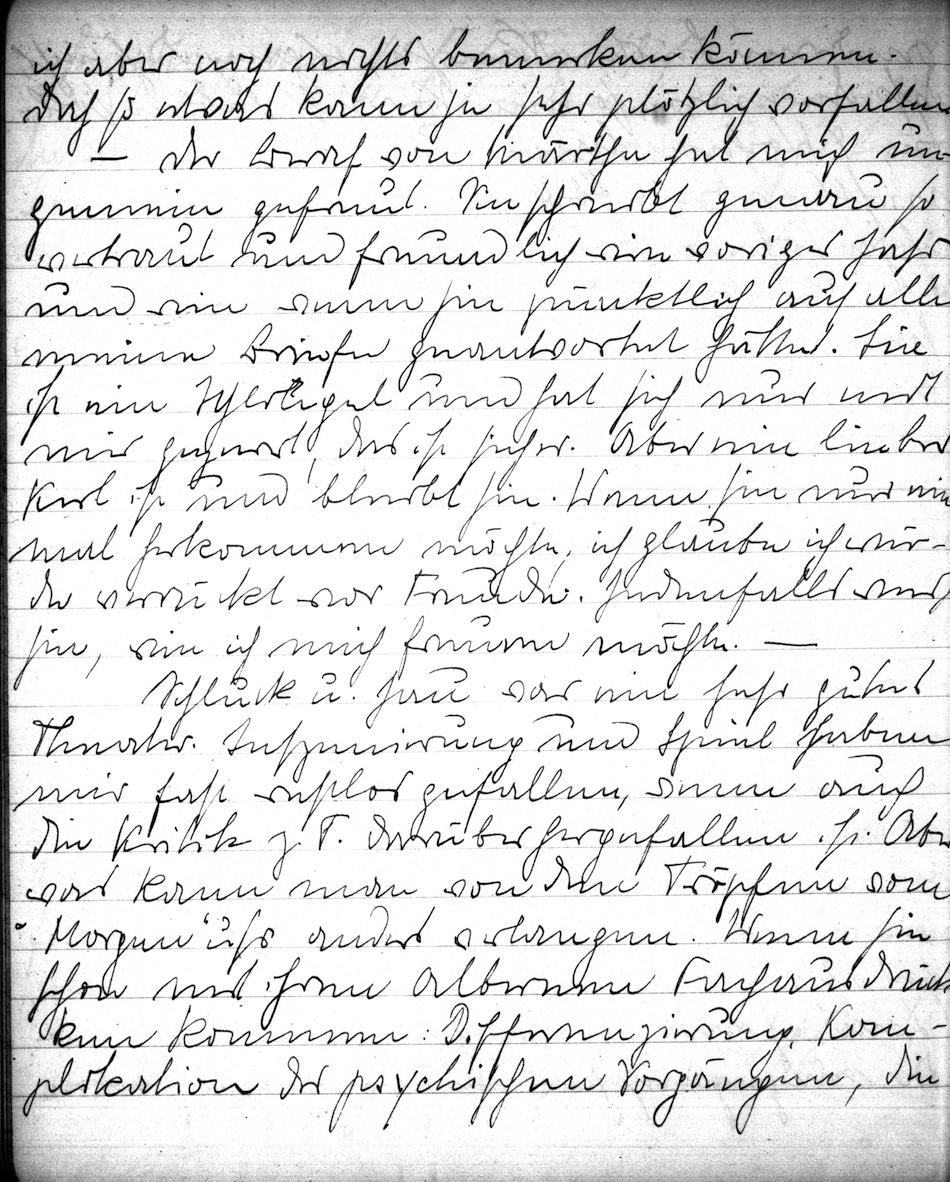 ich aber noch nichts bemerken können.
Doch so etwas kann ja sehr plötzlich vorfallen
— Der Brief von Märthe hat mich un-
gemein gefreut. Sie schreibt genau so
vertraut und freundlich wie voriges Jahr
und wie wenn sie pünktlich auf alle
meine Briefe geantwortet hätte. Sie
ist ein Schlingel und hat sich nur mit
mir geneckt, das ist sicher. Aber ein lieber
Kerl ist und bleibt sie. Wenn sie nur ein-
mal herkommen möchte, ich glaube ich wür-
de verrückt vor Freude. Jedenfalls weiß
sie, wie ich mich freuen möchte. —
Schluck u. Jau war ein sehr gutes
Theater. Inszenierung und Spiel haben
mir fast restlos gefallen, wenn auch
die Kritik z. T. darüber hergefallen ist. Aber
was kann man von den Tröpfen vom
"Morgen" anders verlangen. Wenn sie
schon mit ihren albernen Fachausdrük-
ken kommen: Differenzierung, Kom-
plikation der psychischen Vorgänge, die